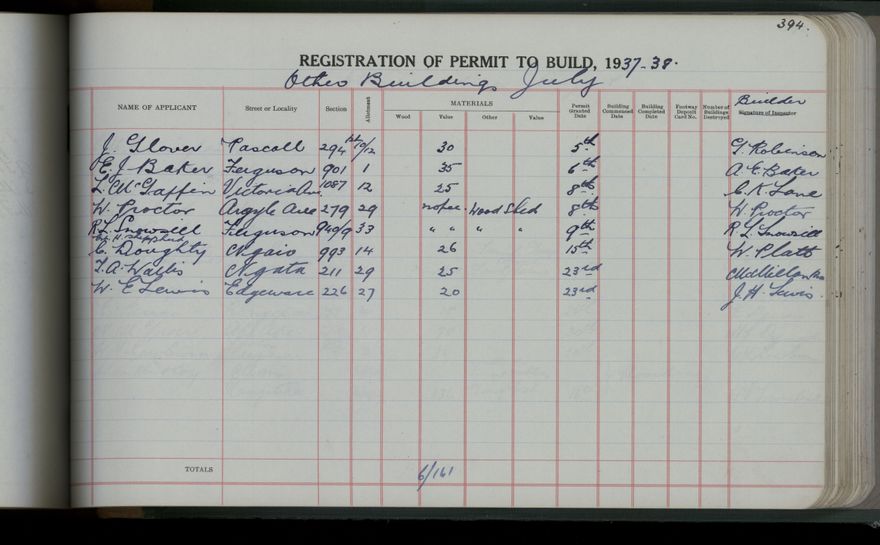 394.
REGISTRATION OF PERMIT TO BUILD, 1937-38.
Other Buildings July
NAME OF APPLICANT Street or Locality Section Allotment MATERIALS Wood Value Other Value Permit Granted Date Building Commenced Date Building Completed Date Footway Deposit Card No. Number of Buildings Destroyed Builder Signature of Inspector
J. Glover Pascall 294 10/12 30 5th G. Robinson
E. J. Baker Ferguson 901 1 35 6th A. E. Baker
L. McGaffin Victoria Ave 1087 12 25 8th C. K. Lane
W. Proctor Argyle Ave 279 29 Wood Shed 8th W. Proctor
R. L. Snowsill Ferguson 940/9 33 " " " " 9th R. L. Snowsill
C. Doughty Ngaio 993 14 26 15th W. Platt
T. A. Wallis Ngata 211 29 25 23rd
W. E. Lewis Edgeware 226 27 20 23rd J. H. Lewis.
TOTALS 6/161